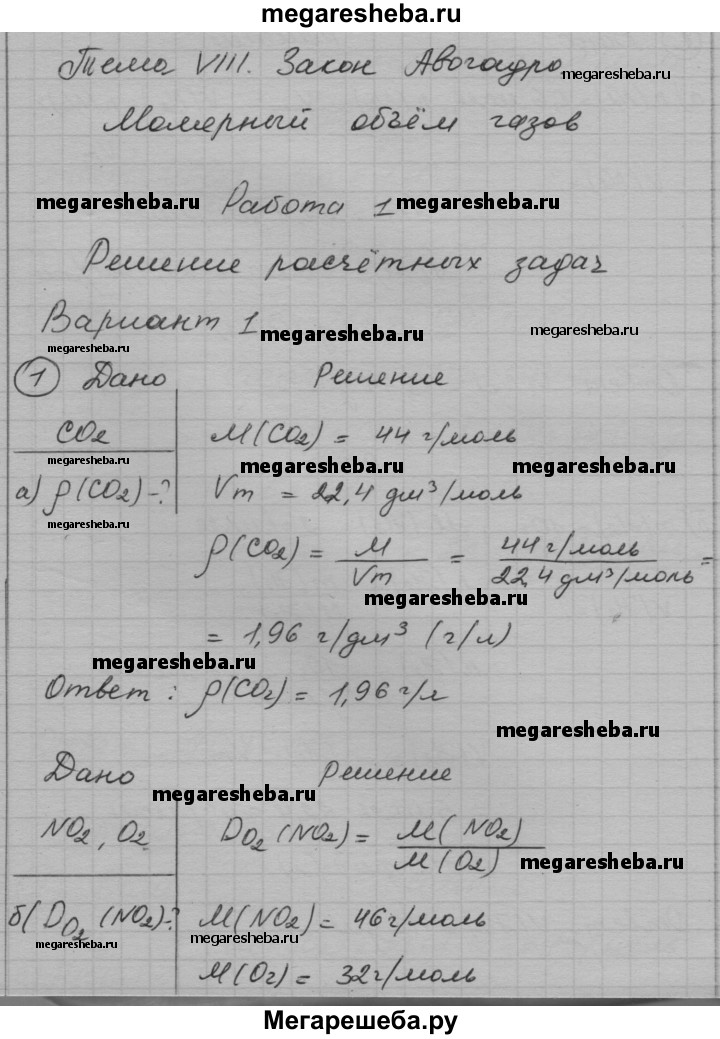 megaresheba.ru
Тема VIII. Закон Авогадро
megaresheba.ru
Молярный объём газов
megaresheba.ru Работа 1 megaresheba.ru
Решение расчётных задач
Вариант 1 megaresheba.ru
megaresheba.ru
1 Дано Решение
CO2 M(CO2) = 44 г/моль
megaresheba.ru megaresheba.ru megaresheba.ru
а) ρ(CO2)-? Vm = 22,4 дм³/моль
megaresheba.ru
ρ(CO2) = M/Vm = 44 г/моль / 22,4 дм³/моль =
megaresheba.ru
= 1,96 г/дм³ (г/л)
megaresheba.ru
Ответ: ρ(CO2) = 1,96 г/л
megaresheba.ru
Дано Решение
megaresheba.ru
NO2, O2 DO2 (NO2) = M(NO2)/M(O2)
megaresheba.ru
б( DO2 (NO2)-? M(NO2) = 46 г/моль
megaresheba.ru megaresheba.ru
M(O2) = 32 г/моль
Мегарешеба.ру